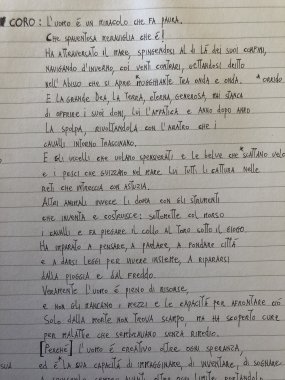 CORO: L'UOMO È UN MIRACOLO CHE FA PAURA.
CHE SPAVENTOSA MERAVIGLIA CHE È!
HA ATTRAVERSATO IL MARE, SPINGENDOSI AL DI LÀ DEI SUOI CONFINI,
NAVIGANDO D'INVERNO, COI VENTI CONTRARI, GETTANDOSI DRITTO
NELL'ABISSO CHE SI APRE *MUGGHIANTE TRA ONDA E ONDA. *ORRIDO
E LA GRANDE DEA, LA TERRA, ETERNA, GENEROSA, MAI STANCA
DI OFFRIRE I SUOI DONI, LUI L'AFFATICA E ANNO DOPO ANNO
LA SPOLPA, RIVOLTANDOLA CON L'ARATRO CHE I
CAVALLI INTORNO TRASCINANO.
E GLI UCCELLI CHE VOLANO SPENSIERATI E LE BELVE CHE *SCATTANO VELO
E I PESCI CHE GUIZZANO NEL MARE LUI TUTTI LI CATTURA NELLE
RETI CHE INTRECCIA CON ASTUZIA.
ALTRI ANIMALI INVECE LI DOMA CON GLI STRUMENTI
CHE INVENTA E COSTRUISCE: SOTTOMETTE COL MORSO
I CAVALLI E FA PIEGARE IL COLLO AL TORO SOTTO IL GIOGO.
HA IMPARATO A PENSARE, A PARLARE, A FONDARE CITTÀ
E A DARSI LEGGI PER VIVERE INSIEME, A RIPARARSI
DALLA PIOGGIA E DAL FREDDO.
VERAMENTE L'UOMO È PIENO DI RISORSE,
E NON GLI MANCANO I MEZZI E LE CAPACITÀ PER AFFRONTARE COS
SOLO DALLA MORTE NON TROVA SCAMPO. MA HA SCOPERTO CURE
PER MALATTIE CHE SEMBRAVANO SENZA RIMEDIO.
[PERCHÉ] L'UOMO È CREATIVO OLTRE OGNI SPERANZA,
ED È LA SUA CAPACITÀ DI IMMAGINARE, DI INVENTARE, DI SOGNARE